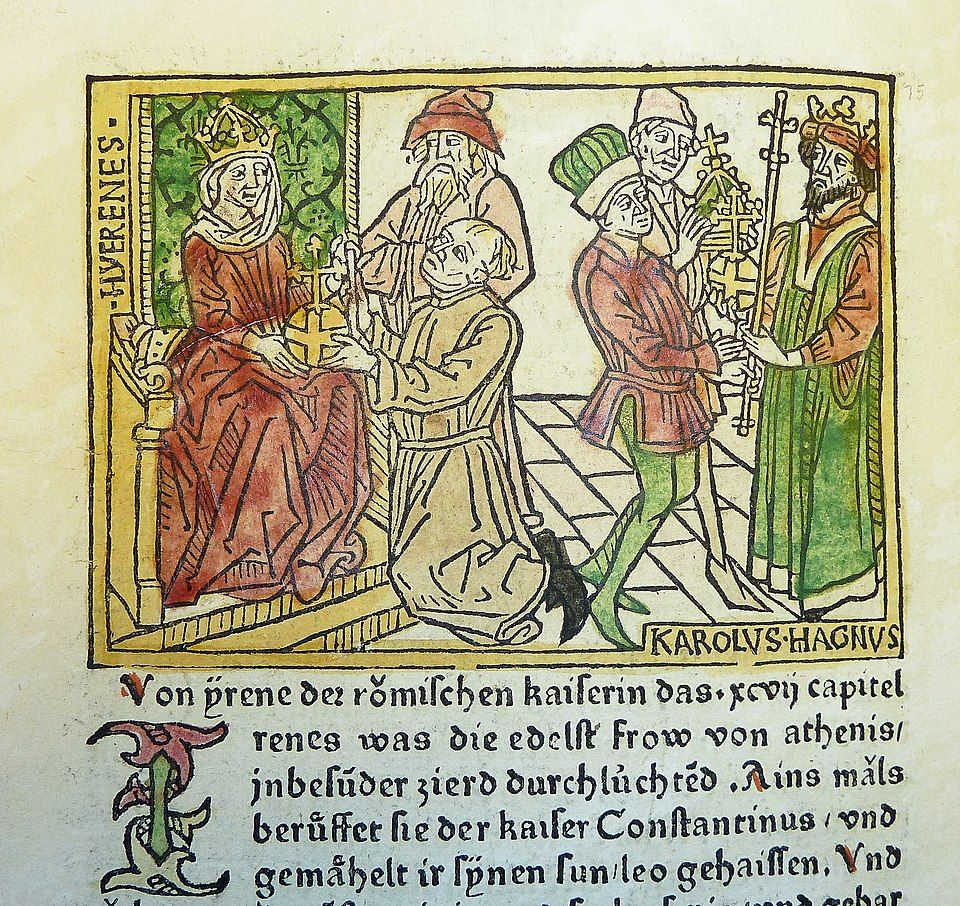 ·HVERENES·
95
KAROLVS·HAGNVS
Von ÿrene der rőmischen kaiserin das·xcvij capitel
Irenes was die edelst frow von athenis/
jnbesūder zierd durchlůchtēd . Ains mǎls
berůffet sie der kaiser Constantinus / vnd
gemǎhelt ir sỹnen sun/leo gehaissen. Vnd